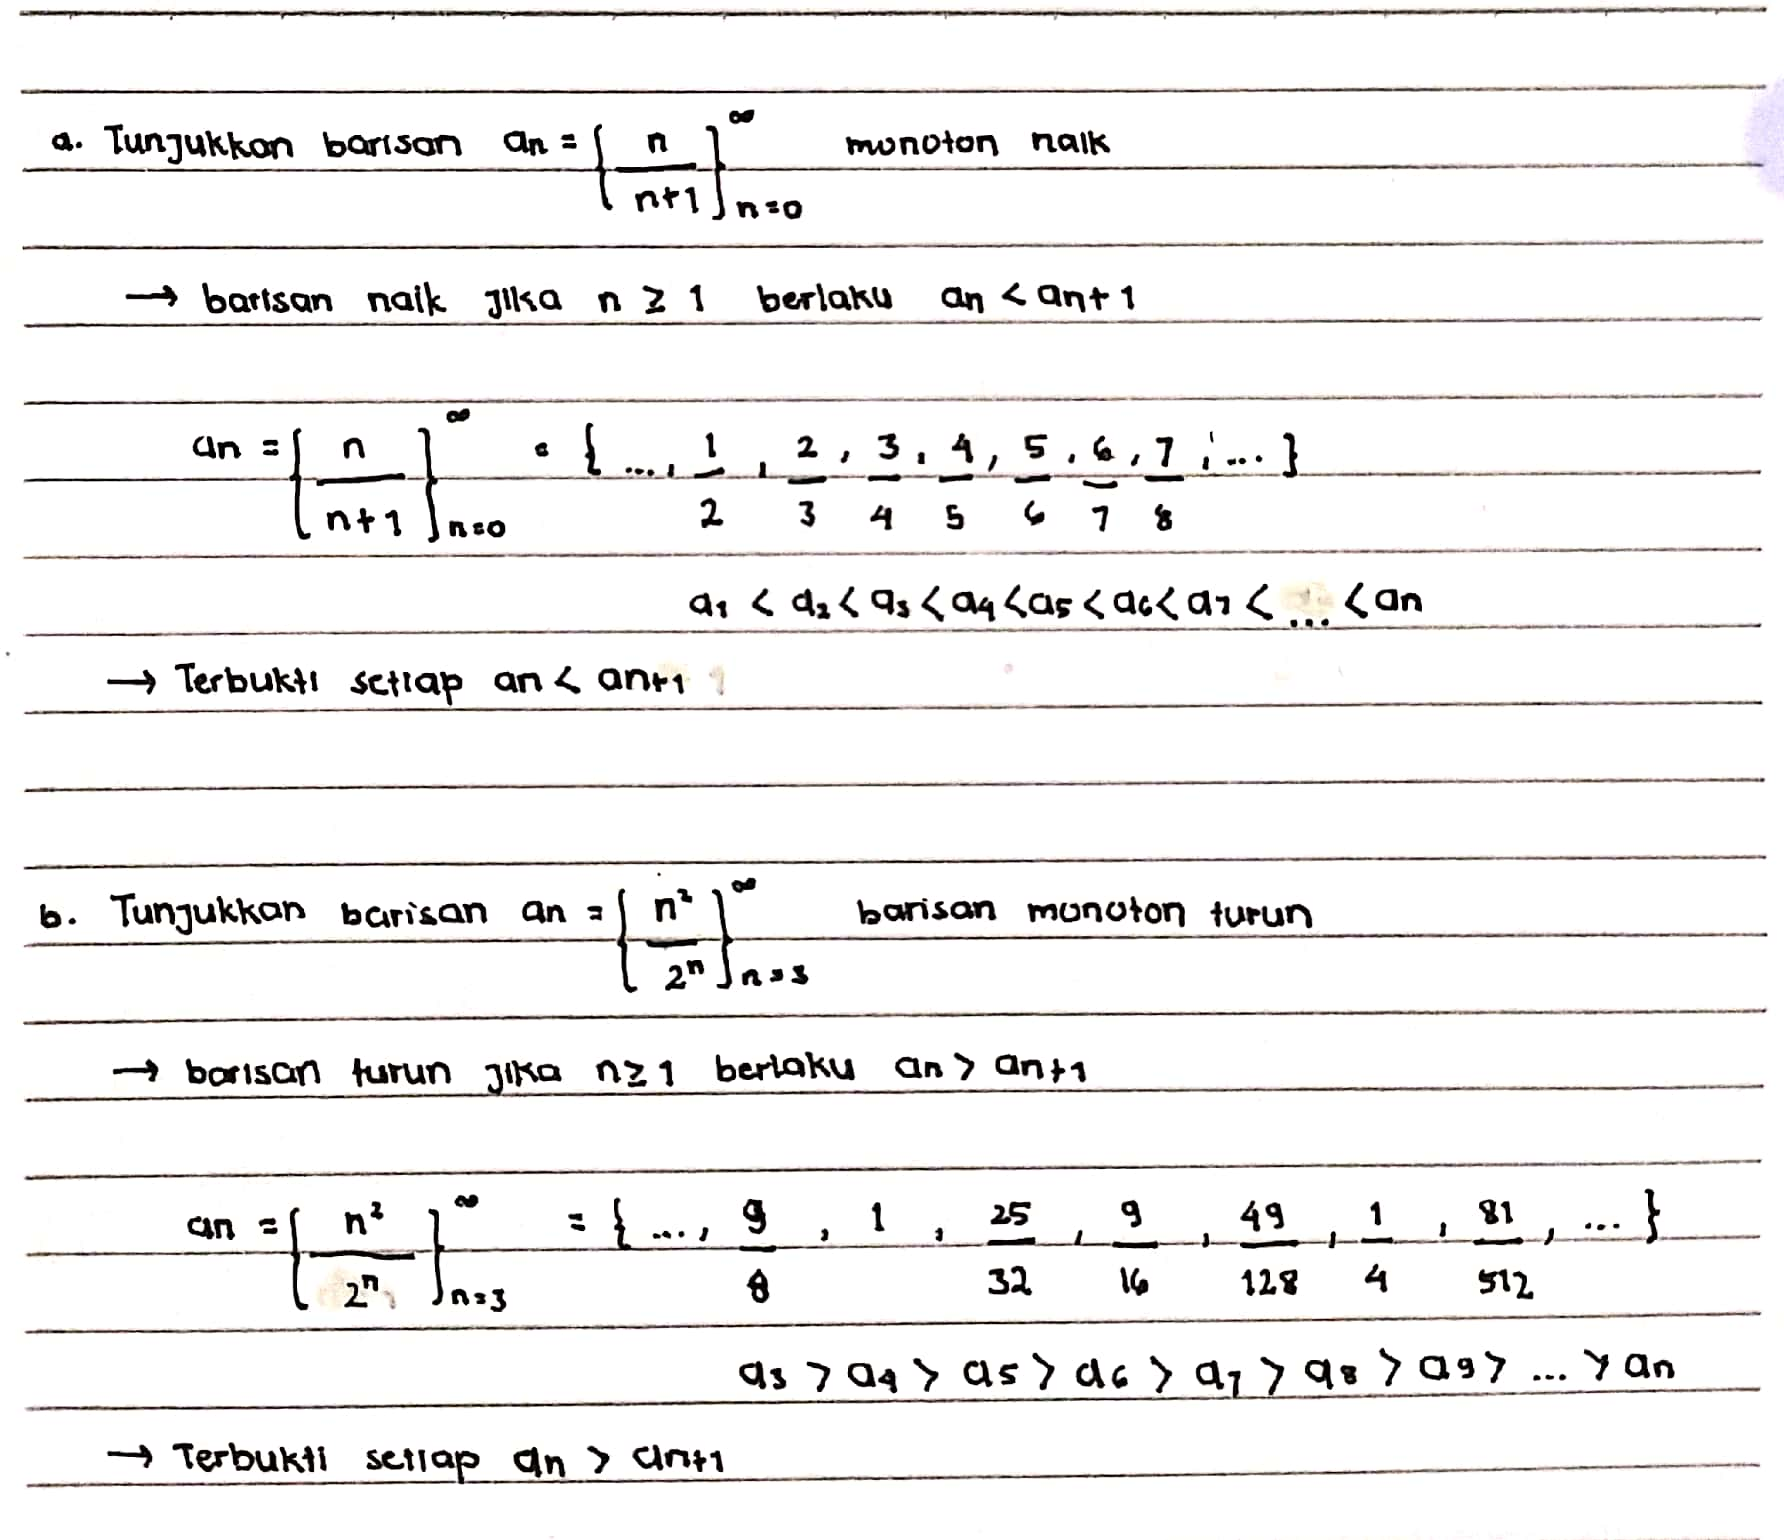 a. Tunjukkan barisan an = { n/n+1 }∞ n=0 monoton naik
→ barisan naik jika n ≥ 1 berlaku an < an+1
an = { n/n+1 }∞ n=0 = { ..., 1/2, 2/3, 3/4, 4/5, 5/6, 6/7, 7/8, ... }
a₁ < a₂ < a₃ < a₄ < a₅ < a₆ < a₇ < ... < an
→ Terbukti setiap an < an+1
b. Tunjukkan barisan an = { n²/2ⁿ }∞ n=3 barisan monoton turun
→ barisan turun jika n ≥ 1 berlaku an > an+1
an = { n²/2ⁿ }∞ n=3 = { ..., 9/8, 1, 25/32, 9/16, 49/128, 1/4, 81/512, ... }
a₃ > a₄ > a₅ > a₆ > a₇ > a₈ > a₉ > ... > an
→ Terbukti setiap an > an+1